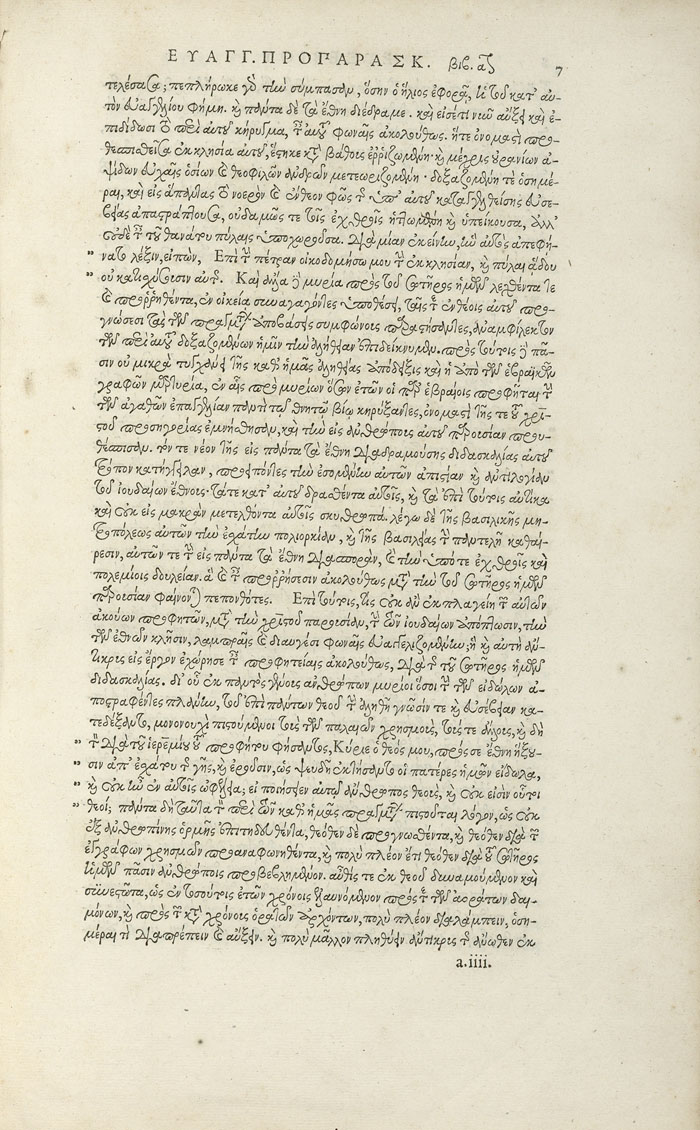 ΕΥΑΓΓ. ΠΡΟΠΑΡΑΣΚ. βιβ. αʹ 7
τελέσασα; πεπλήρωκε γὸ τὴν σύμπασαν, ὅσην ὁ ἥλιος ἐφορᾷ, ἡ τοῦ κατ' αὐ-
τὸν εὐαγγελίου φήμη. καὶ πάντα δὲ τὰ ἔθνη διέδραμε. καὶ εἰσέτι νῦν αὔξει καὶ ἐ-
πιδίδωσι τὸ περὶ αὐτοῦ κήρυγμα, ταῖς αὐτοῦ φωναῖς ἀκολούθως. ἥτε ὀνομαστὶ προ-
θεσπισθεῖσα ἐκκλησία αὐτοῦ, ἕστηκε κατὰ βάθους ἐρριζωμένη· καὶ μέχρις οὐρανίων ἁ-
ψίδων εὐχαῖς ὁσίων καὶ θεοφιλῶν ἀνδρῶν μετεωριζομένη· δοξαζομένη τε ὁσημέ-
ραι, καὶ εἰς ἅπαντας τὸ νοερὸν καὶ ἔνθεον φῶς τῆς ὑπ' αὐτοῦ καταγγελθείσης εὐσε-
βείας ἀπαστράπτουσα, οὐδαμῶς τε τοῖς ἐχθροῖς ἡττωμένη καὶ ὑπείκουσα, ἀλλ'
οὐδὲ ταῖς τοῦ θανάτου πύλαις ὑποχωροῦσα. διὰ μίαν ἐκείνην, ἣν αὐτὸς ἀπεφή-
„ νατο λέξιν, εἰπών, Ἐπὶ τὴν πέτραν οἰκοδομήσω μου τὴν ἐκκλησίαν, καὶ πύλαι ᾅδου
„ οὐ κατισχύσουσιν αὐτῆς. Καὶ ἄλλα δὲ μυρία πρὸς τοῦ σωτῆρος ἡμῶν λεχθέντα τε
καὶ προῤῥηθέντα, ἐν οἰκείᾳ συναγαγόντες ὑποθέσει, ταῖς τε ἐνθέοις αὐτοῦ προ-
γνώσεσι τὰς τῶν πραγμάτων ἀποβάσεις συμφώνους παραστήσαντες, ἀναμφίλεκτον
τῶν περὶ αὐτοῦ δοξαζομένων ἡμῖν τὴν ἀλήθειαν ἐπιδείκνυμεν. πρὸς τούτοις δὲ πᾶ-
σιν οὐ μικρὰ τυγχάνει τῆς καθ' ἡμᾶς ἀληθείας ἀπόδειξις καὶ ἡ ἀπὸ τῶν ἑβραϊκῶν
γραφῶν μαρτυρία, ἐν αἷς πρὸ μυρίων ὅσων ἐτῶν οἱ παρ' ἑβραίοις προφῆται τὴν
τῶν ἀγαθῶν ἐπαγγελίαν παντὶ τῷ θνητῷ βίῳ κηρύξαντες, ὀνομαστὶ τῆς τε τοῦ χρι-
στοῦ προσηγορίας ἐμνήσθησαν, καὶ τὴν εἰς ἀνθρώπους αὐτοῦ παρουσίαν πρου-
θέσπισαν. τόν τε νέον τῆς εἰς πάντα τὰ ἔθνη διαδραμούσης διδασκαλίας αὐτοῦ
τρόπον κατήγγειλαν, προειπόντες τὴν ἐσομένην αὐτῶν ἀπιστίαν καὶ ἀντιλογίαν
τοῦ ἰουδαίων ἔθνους· τά τε κατ' αὐτοῦ δραθέντα αὐτοῖς, καὶ τὰ ἐπὶ τούτοις αὐτίκα
καὶ οὐκ εἰς μακρὰν μετελθόντα αὐτοὺς σκυθρωπά. λέγω δὲ τῆς βασιλικῆς μη-
τροπόλεως αὐτῶν τὴν ἐσχάτην πολιορκίαν, καὶ τῆς βασιλείας τὴν παντελῆ καθαί-
ρεσιν, αὐτῶν τε τὴν εἰς πάντα τὰ ἔθνη διασποράν, καὶ τὴν ὑπό τε ἐχθροῖς καὶ
πολεμίοις δουλείαν. ἃ καὶ τῇ προῤῥήσει ἀκολούθως μετὰ τὴν τοῦ σωτῆρος ἡμῶν
παρουσίαν φαίνονται πεπονθότες. Ἐπὶ τούτοις, τίς οὐκ ἂν ἐκπλαγείη τῶν αὐτῶν
ἀκούων προφητῶν, μετὰ τὴν χριστοῦ παρουσίαν, τὴν τῶν ἰουδαίων ἀπόπτωσιν, τὴν
τῶν ἐθνῶν κλῆσιν, λαμπραῖς καὶ διαυγέσι φωναῖς εὐαγγελιζομένων; ἣ καὶ αὐτὴ ἄν-
τικρυς εἰς ἔργον ἐχώρησε ταῖς προφητείαις ἀκολούθως, διὰ τῆς τοῦ σωτῆρος ἡμῶν
διδασκαλίας. δι' οὗ ἐκ παντὸς γένους ἀνθρώπων μυρίοι ὅσοι τὴν τῶν εἰδώλων ἀ-
ποστραφέντες πλάνην, τοῦ ἐπὶ πάντων θεοῦ τὴν ἀληθῆ γνῶσίν τε καὶ εὐσέβειαν κα-
τεδέξαντο, μονονουχὶ πιστούμενοι τοὺς τῶν παλαιῶν χρησμοὺς, τούς τε ἄλλους, καὶ δὴ
„ τὸν διὰ τοῦ ἱερεμίου τοῦ προφήτου φήσαντος, Κύριε ὁ θεός μου, πρός σε ἔθνη ἥξου-
„ σιν ἀπ' ἐσχάτου τῆς γῆς, καὶ ἐροῦσιν, ὡς ψευδῆ ἐκτήσαντο οἱ πατέρες ἡμῶν εἴδωλα,
„ καὶ οὐκ ἦν ἐν αὐτοῖς ὠφέλεια; εἰ ποιήσει αὑτῷ ἄνθρωπος θεοὺς, καὶ οὐκ εἰσὶν οὗτοι
„ θεοί; πάντα δὴ ταῦτα τὸν περὶ τῶν καθ' ἡμᾶς πραγμάτων πιστοῦται λόγον, ὡς οὐκ
ἐξ ἀνθρωπίνης ὁρμῆς ἐπιτηδευθέντα, θεόθεν δὲ προγνωσθέντα, καὶ θεόθεν διὰ τῶν
ἐγγράφων χρησμῶν προαναφωνηθέντα, καὶ πολὺ πλέον ἔτι θεόθεν διὰ τοῦ σωτῆρος
ἡμῶν πᾶσιν ἀνθρώποις προβεβλημένον. αὖθίς τε ἐκ θεοῦ δυναμούμενον καὶ
συνεστῶτα, ὡς ἐν τοσούτοις ἐτῶν χρόνοις ἐλαυνόμενον πρός τε τῶν ἀοράτων δαι-
μόνων, καὶ πρὸς τῶν κατὰ χρόνους ὁρατῶν ἀρχόντων, πολὺ πλέον διαλάμπειν, ὁση-
μέραι τε διαπρέπειν καὶ αὔξειν. καὶ πολὺ μᾶλλον πληθύειν ἄντικρυς τῆς ἄνωθεν ἐκ
a.iiii.